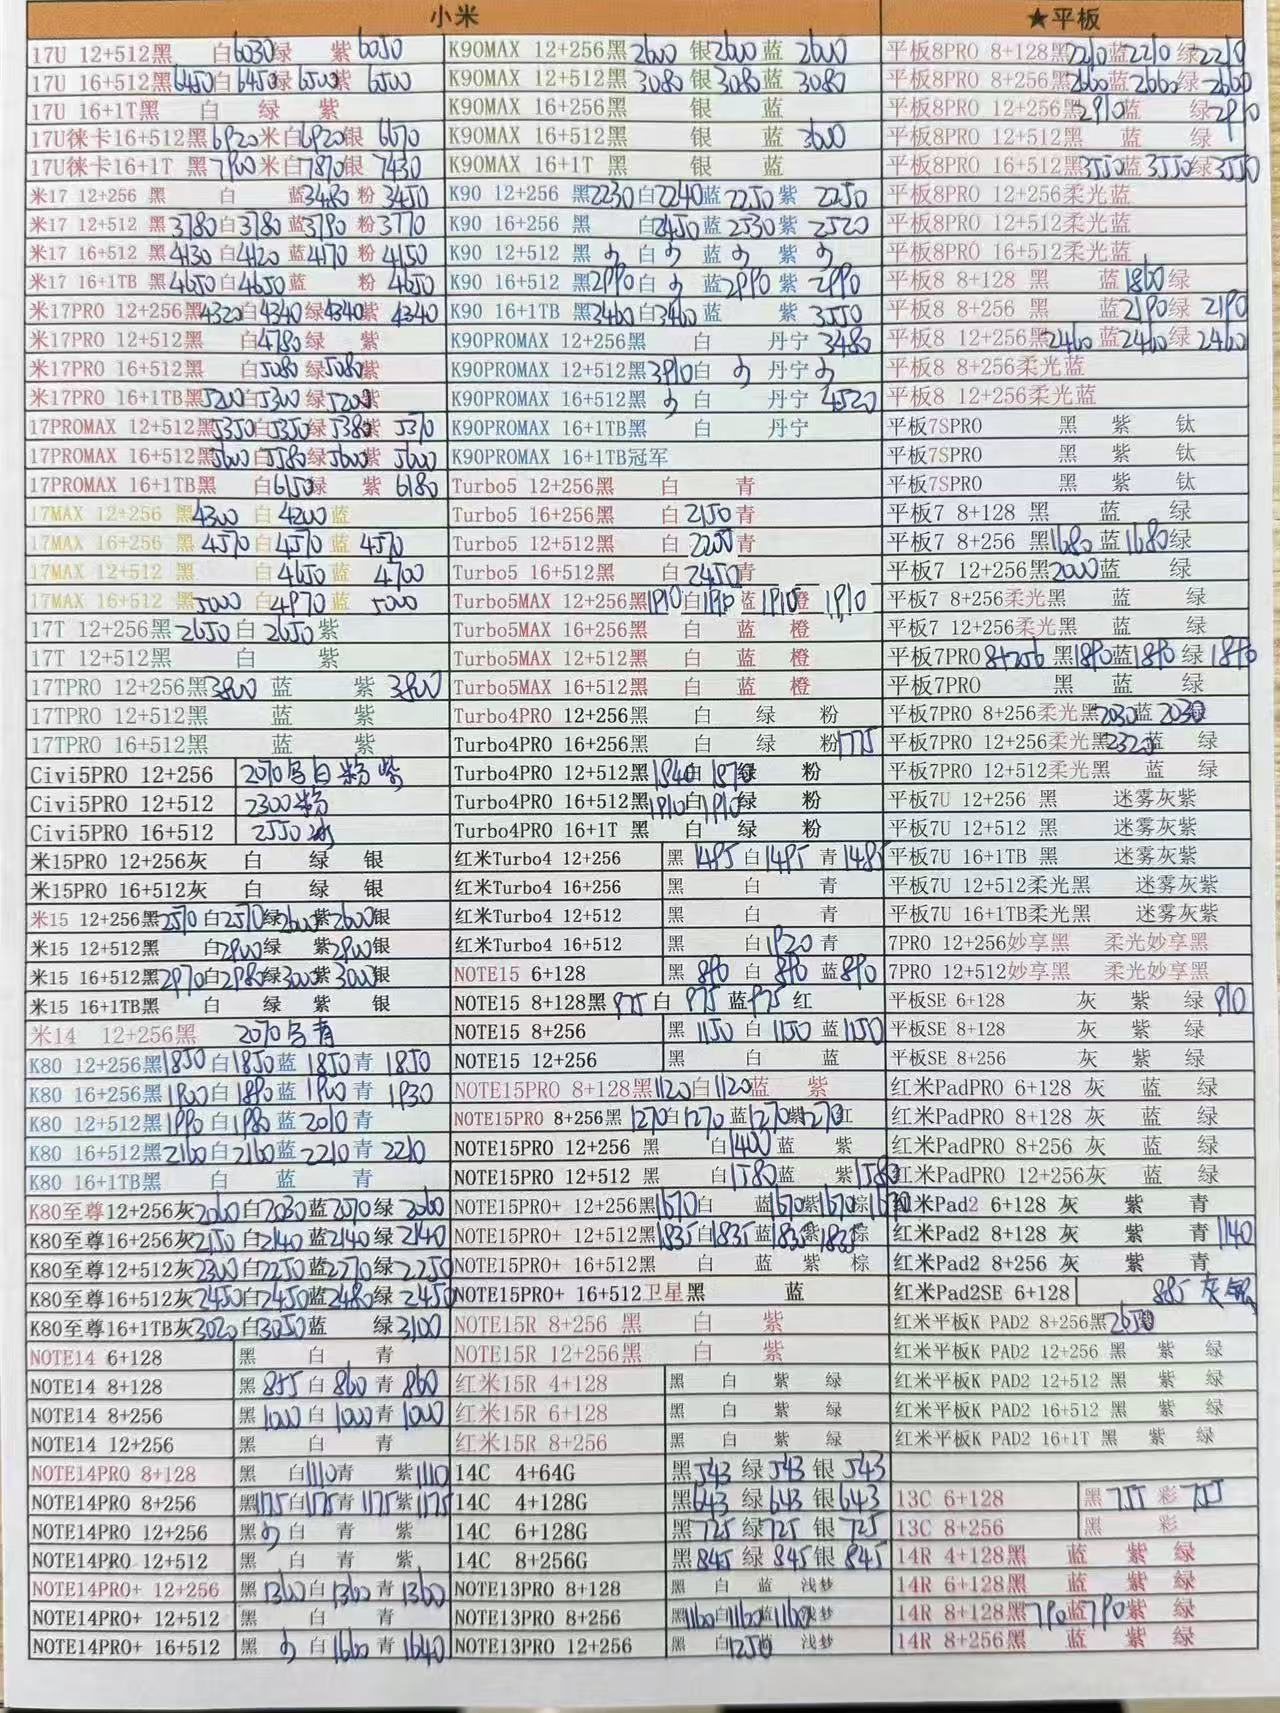 小米
17U 12+512黑 白6030绿 紫6050
17U 16+512黑6450白6450绿6500紫 6500
17U 16+1T黑 白 绿 紫
17U徕卡16+512黑6920米白6920银 6670
17U徕卡16+1T 黑7900米白7870银 7430
米17 12+256 黑 白 蓝3480粉3450
米17 12+512 黑3780白3780蓝3790粉3770
米17 16+512 黑4130白4120蓝4170粉4150
米17 16+1TB黑4650白4650蓝 粉4650
米17PRO 12+256黑4320白4340绿4340紫 4340
米17PRO 12+512黑 白4780绿 紫
米17PRO 16+512黑 白5080绿5080紫
米17PRO 16+1TB黑5200白5300绿5200紫
17PROMAX 12+512黑5350白5350绿5380紫 5370
17PROMAX 16+512黑5600白5580绿5600紫 5600
17PROMAX 16+1TB黑 白6150绿 紫6180
17MAX 12+256 黑4300 白4200蓝
17MAX 16+256 黑4570白4570蓝4570
17MAX 12+512 黑 白4650蓝4700
17MAX 16+512 黑5000白4970蓝5000
17T 12+256黑2650白2650紫
17T 12+512黑 白 紫
17TPRO 12+256黑3800 蓝 紫3800
17TPRO 12+512黑 蓝 紫
17TPRO 16+512黑 蓝 紫
Civi5PRO 12+256 2070 白粉紫
Civi5PRO 12+512 2300粉
Civi5PRO 16+512 2550
米15PRO 12+256灰 白 绿 银
米15PRO 16+512灰 白 绿 银
米15 12+256黑2570白2570绿2600紫2600银
米15 12+512黑 白2900绿 紫2900银
米15 16+512黑2970白2980绿3000紫3000银
米15 16+1TB黑 白 绿 紫 银
米14 12+256黑 2070 青
K80 12+256黑1850白1850蓝1850青1850
K80 16+256黑1900白1890蓝1900青1930
K80 12+512黑1990白1980蓝2010青
K80 16+512黑2160白2160蓝2210青2210
K80 16+1TB黑 白 蓝 青
K80至尊12+256灰2060白2030蓝2070绿2060
K80至尊16+256灰2150白2140蓝2140绿2140
K80至尊12+512灰2300白2250蓝2270绿2250
K80至尊16+512灰2450白2450蓝2480绿2450
K80至尊16+1TB灰3020白3050蓝 绿3100
NOTE14 6+128 黑 白 青
NOTE14 8+128 黑855白860青860
NOTE14 8+256 黑1000白1000青1000
NOTE14 12+256 黑 白 青
NOTE14PRO 8+128 黑 白1110青 紫1110
NOTE14PRO 8+256 黑1175白1175青1175紫1175
NOTE14PRO 12+256 黑 白 青 紫
NOTE14PRO 12+512 黑 白 青 紫
NOTE14PRO+ 12+256 黑1360白1360青1360
NOTE14PRO+ 12+512 黑 白 青
NOTE14PRO+ 16+512 黑 白1660青1640
K90MAX 12+256黑2600银2600蓝2600
K90MAX 12+512黑3080银3080蓝3080
K90MAX 16+256黑 银 蓝
K90MAX 16+512黑 银 蓝3600
K90MAX 16+1T 黑 银 蓝
K90 12+256 黑2230白2240蓝2250紫 2250
K90 16+256 黑 白2450蓝2530紫 2520
K90 12+512 黑 白 蓝 紫
K90 16+512 黑2990白 蓝2990紫2990
K90 16+1TB 黑3460白3460蓝 紫3550
K90PROMAX 12+256黑 白 丹宁3480
K90PROMAX 12+512黑3910白 丹宁
K90PROMAX 16+512黑 白 丹宁4520
K90PROMAX 16+1TB黑 白 丹宁
K90PROMAX 16+1TB冠军
Turbo5 12+256黑 白 青
Turbo5 16+256黑 白2150青
Turbo5 12+512黑 白2255青
Turbo5 16+512黑 白2450青
Turbo5MAX 12+256黑1910白1910蓝1910橙1910
Turbo5MAX 16+256黑 白 蓝 橙
Turbo5MAX 12+512黑 白 蓝 橙
Turbo5MAX 16+512黑 白 蓝 橙
Turbo4PRO 12+256黑 白 绿 粉
Turbo4PRO 16+256黑 白 绿 粉1775
Turbo4PRO 12+512黑1840白1870绿 粉
Turbo4PRO 16+512黑1910白1910绿 粉
Turbo4PRO 16+1T 黑 白 绿 粉
红米Turbo4 12+256 黑1495白1495青1485
红米Turbo4 16+256 黑 白 青
红米Turbo4 12+512 黑 白 青
红米Turbo4 16+512 黑 白1920青
NOTE15 6+128 黑890白890蓝890
NOTE15 8+128黑975白975蓝975红
NOTE15 8+256 黑1150白1150蓝1150
NOTE15 12+256 黑 白 蓝
NOTE15PRO 8+128黑1120白1120蓝 紫
NOTE15PRO 8+256黑1270白1270蓝1270紫1270红
NOTE15PRO 12+256 黑 白1400蓝 紫
NOTE15PRO 12+512 黑 白1580蓝 紫1580
NOTE15PRO+ 12+256黑1670白 蓝1670紫1670棕1670
NOTE15PRO+ 12+512黑1835白1835蓝1835紫1835棕
NOTE15PRO+ 16+512黑 白 蓝 紫 棕
NOTE15PRO+ 16+512卫星黑 蓝
NOTE15R 8+256 黑 白 紫
NOTE15R 12+256黑 白 紫
红米15R 4+128 黑 白 紫 绿
红米15R 6+128 黑 白 紫 绿
红米15R 8+256 黑 白 紫 绿
14C 4+64G 黑543绿543银543
14C 4+128G 黑643绿643银643
14C 6+128G 黑725绿725银725
14C 8+256G 黑845绿845银845
NOTE13PRO 8+128 黑 白 蓝 浅梦
NOTE13PRO 8+256 黑1160白1160蓝1160浅梦
NOTE13PRO 12+256 黑 白1250 浅梦
★平板
平板8PRO 8+128黑2210蓝2210绿2210
平板8PRO 8+256黑2660蓝2660绿2660
平板8PRO 12+256黑2910蓝 绿2910
平板8PRO 12+512黑 蓝 绿
平板8PRO 16+512黑3550蓝3550绿3550
平板8PRO 12+256柔光蓝
平板8PRO 12+512柔光蓝
平板8PRO 16+512柔光蓝
平板8 8+128 黑 蓝1860绿
平板8 8+256 黑 蓝2190绿2190
平板8 12+256黑2460蓝2460绿2460
平板8 8+256柔光蓝
平板8 12+256柔光蓝
平板7SPRO 黑 紫 钛
平板7SPRO 黑 紫 钛
平板7SPRO 黑 紫 钛
平板7 8+128 黑 蓝 绿
平板7 8+256 黑1680蓝1680绿
平板7 12+256黑2000蓝 绿
平板7 8+256柔光黑 蓝 绿
平板7 12+256柔光黑 蓝 绿
平板7PRO 8+256 黑1890蓝1890绿1890
平板7PRO 黑 蓝 绿
平板7PRO 8+256柔光黑2030蓝2030绿
平板7PRO 12+256柔光黑2325蓝 绿
平板7PRO 12+512柔光黑 蓝 绿
平板7U 12+256 黑 迷雾灰紫
平板7U 12+512 黑 迷雾灰紫
平板7U 16+1TB 黑 迷雾灰紫
平板7U 12+512柔光黑 迷雾灰紫
平板7U 16+1TB柔光黑 迷雾灰紫
7PRO 12+256妙享黑 柔光妙享黑
7PRO 12+512妙享黑 柔光妙享黑
平板SE 6+128 灰 紫 绿910
平板SE 8+128 灰 紫 绿
平板SE 8+256 灰 紫 绿
红米PadPRO 6+128 灰 蓝 绿
红米PadPRO 8+128 灰 蓝 绿
红米PadPRO 8+256 灰 蓝 绿
红米PadPRO 12+256灰 蓝 绿
红米Pad2 6+128 灰 紫 青
红米Pad2 8+128 灰 紫 青1140
红米Pad2 8+256 灰 紫 青
红米Pad2SE 6+128 885 灰
红米平板K PAD2 8+256黑2650
红米平板K PAD2 12+256 黑 紫 绿
红米平板K PAD2 12+512 黑 紫 绿
红米平板K PAD2 16+512 黑 紫 绿
红米平板K PAD2 16+1T 黑 紫 绿
13C 6+128 黑755彩755
13C 8+256 黑 彩
14R 4+128黑 蓝 紫 绿
14R 6+128黑 蓝 紫 绿
14R 8+128黑790蓝790紫 绿
14R 8+256黑 蓝 紫 绿